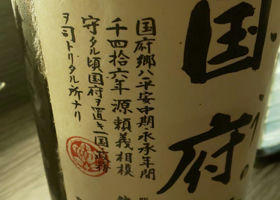 国府
国府郷ハ平安中期永承年間
千四拾六年源頼義相模
守タル頃国府ヲ置キ一国ノ政務
ヲ司トリタル所ナリ